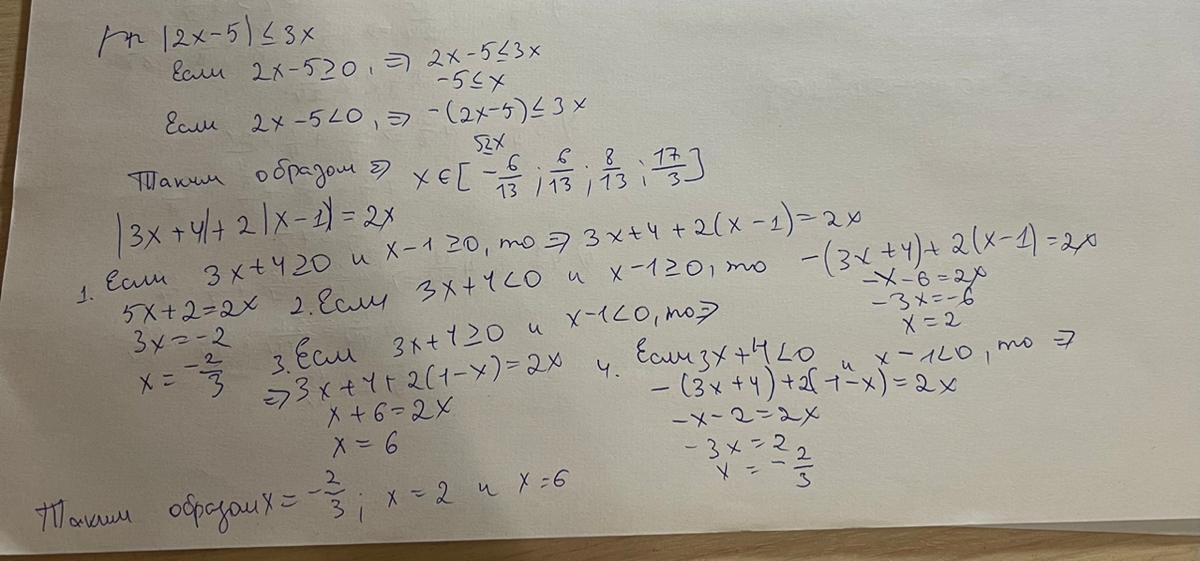 |2x-5| ≤ 3x
Если 2x-5≥0, ⇒ 2x-5≤3x
-5≤x
Если 2x-5<0, ⇒ -(2x-5)≤3x
Таким образом ⇒ x∈[-6/13; 6/13; 8/13; 17/3]
|3x+4|+2|x-1|=2x
1. Если 3x+4≥0 и x-1≥0, то ⇒ 3x+4+2(x-1)=2x
5x+2=2x
3x=-2
x=-2/3
2. Если 3x+4<0 и x-1≥0, то -(3x+4)+2(x-1)=2x
-x-6=2x
-3x=-6
x=2
3. Если 3x+4≥0 и x-1<0, то ⇒
⇒ 3x+4+2(1-x)=2x
x+6=2x
x=6
4. Если 3x+4<0 и x-1<0, то ⇒
-(3x+4)+2(1-x)=2x
-x-2=2x
-3x=2
x=-2/3
Таким образом x=-2/3; x=2 и x=6